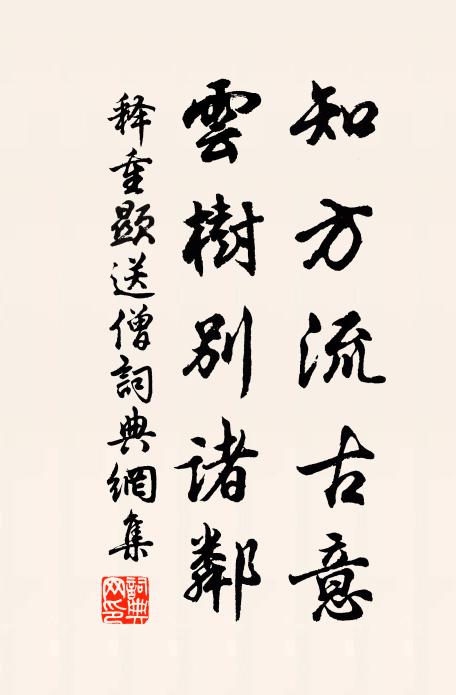 知方流古意
雲樹別諸鄰
释重顯送僧詞典網集
詞典網印